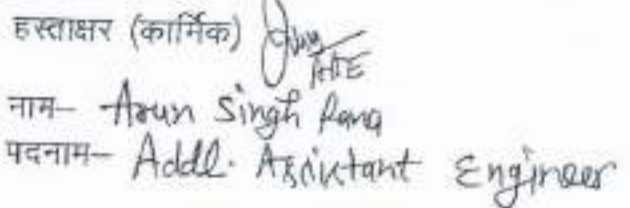 हस्ताक्षर (कार्मिक)
AAE
नाम- Arun Singh Rana
पदनाम- Addl. Assistant Engineer